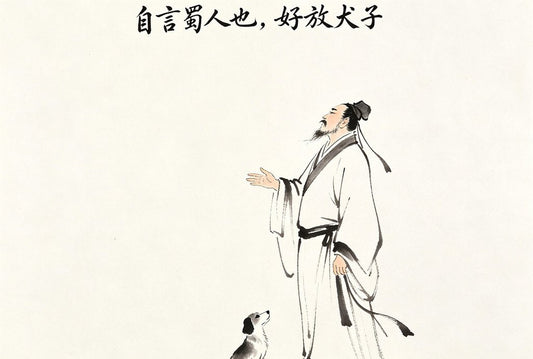 自言蜀人也，好放犬子